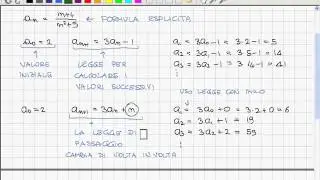 an = n+4 / n²+5 ← FORMULA ESPLICITA
a0 = 2 an+1 = 3an - 1
VALORE INIZIALE
LEGGE PER CALCOLARE I VALORI SUCCESSIVI
a1 = 3a0 - 1 = 3·2 - 1 = 5
a2 = 3a1 - 1 = 3·5 - 1 = 14
a3 = 3a2 - 1 = 3·14 - 1 = 41
⋮
USO LEGGE CON n=0
a0 = 2 an+1 = 3an + n
LA LEGGE DI PASSAGGIO
CAMBIA DI VOLTA IN VOLTA
a1 = 3a0 + 0 = 3·2 + 0 = 6
a2 = 3a1 + 1 = 19
a3 = 3a2 + 2 = 59
⋮